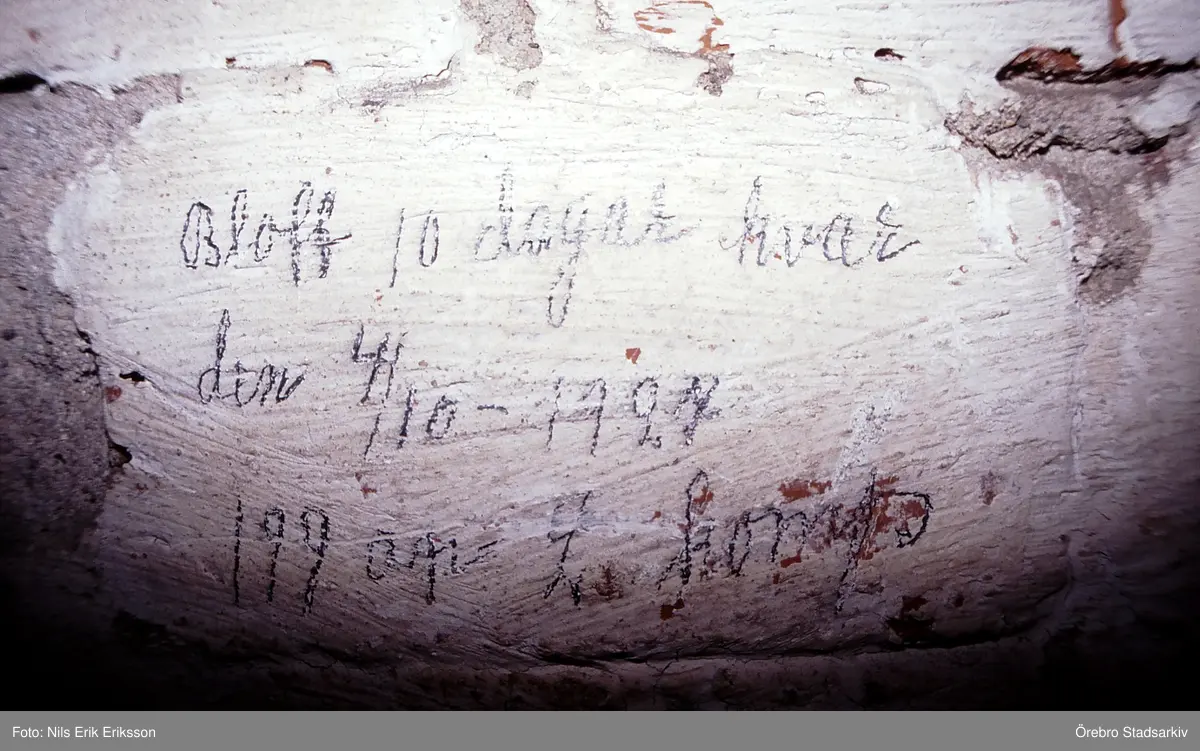 Bloff 10 dagar kvar
den 4/10-1927
199 ogr 7 komp
Foto: Nils Erik Eriksson
Örebro Stadsarkiv